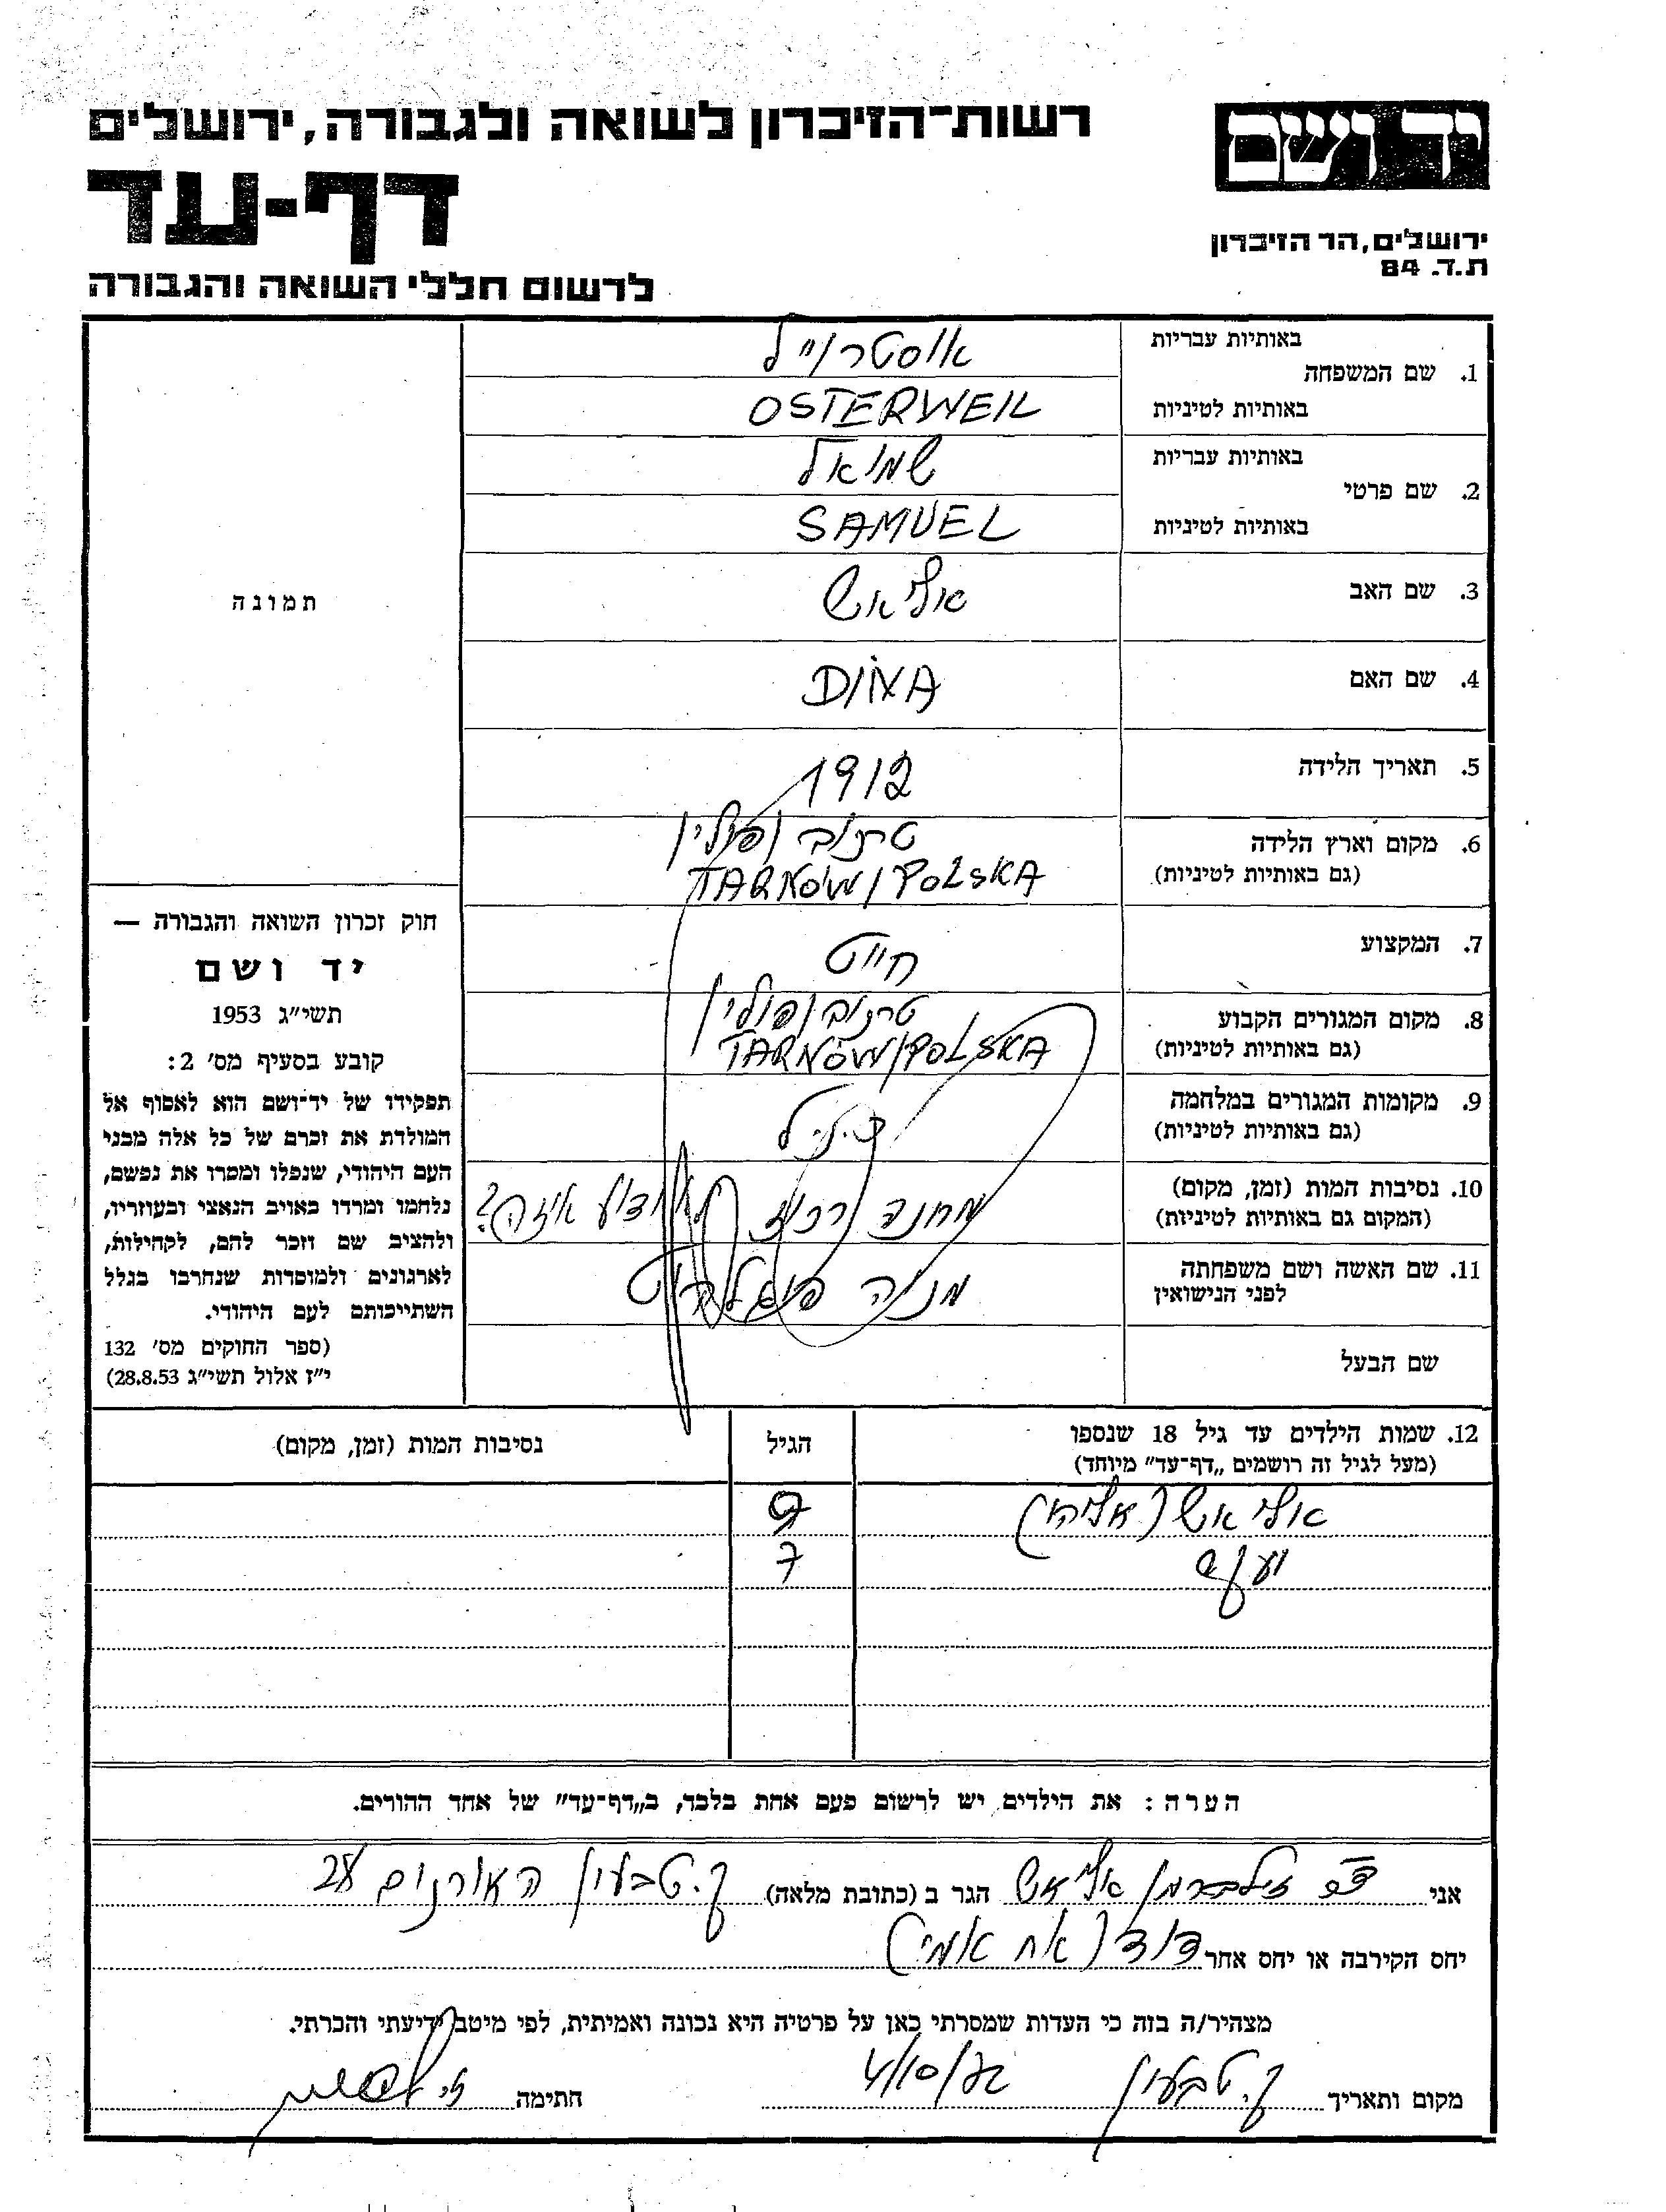 יד ושם
רשות־הזיכרון לשואה ולגבורה, ירושלים
דף-עד
ירושלים, הר הזיכרון
ת.ד. 84
לרשום חללי השואה והגבורה
באותיות עבריות
אוסטרוייל
1. שם המשפחה
באותיות לטיניות
OSTERWEIL
באותיות עבריות
שמואל
2. שם פרטי
באותיות לטיניות
SAMUEL
3. שם האב
אליאש
4. שם האם
DINA
5. תאריך הלידה
1912
6. מקום וארץ הלידה
(גם באותיות לטיניות)
טרנוב / פולין
TARNÓW / POLSKA
7. המקצוע
חייט
8. מקום המגורים הקבוע
(גם באותיות לטיניות)
טרנוב / פולין
TARNÓW / POLSKA
9. מקומות המגורים במלחמה
(גם באותיות לטיניות)
10. נסיבות המות (זמן, מקום)
(המקום גם באותיות לטיניות)
מחנה ריכוז לא ידוע איזה?
11. שם האשה ושם משפחתה
לפני הנישואין
מניה
שם הבעל
תמונה
חוק זכרון השואה והגבורה —
יד ושם
תשי״ג 1953
קובע בסעיף מס׳ 2:
תפקידו של יד־ושם הוא לאסוף אל
המולדת את זכרם של כל אלה מבני
העם היהודי, שנפלו ומסרו את נפשם,
נלחמו ומרדו באויב הנאצי ובעוזריו,
ולהציב שם וזכר להם, לקהילות,
לארגונים ולמוסדות שנחרבו בגלל
השתייכותם לעם היהודי.
(ספר החוקים מס׳ 132
י״ז אלול תשי״ג 28.8.53)
12. שמות הילדים עד גיל 18 שנספו הגיל נסיבות המות (זמן, מקום)
(מעל לגיל זה רושמים „דף־עד״ מיוחד)
אליאש (אליהו) 9
יעקב 7
הערה: את הילדים יש לרשום פעם אחת בלבד, ב„דף־עד״ של אחד ההורים.
אני זילברמן אליאש הגר ב (כתובת מלאה) ק. טבעון האורנים 28
יחס הקירבה או יחס אחר דוד (אח אמי)
מצהיר/ה בזה כי העדות שמסרתי כאן על פרטיה היא נכונה ואמיתית, לפי מיטב ידיעתי והכרתי.
מקום ותאריך ק. טבעון 4/10/82 חתימה